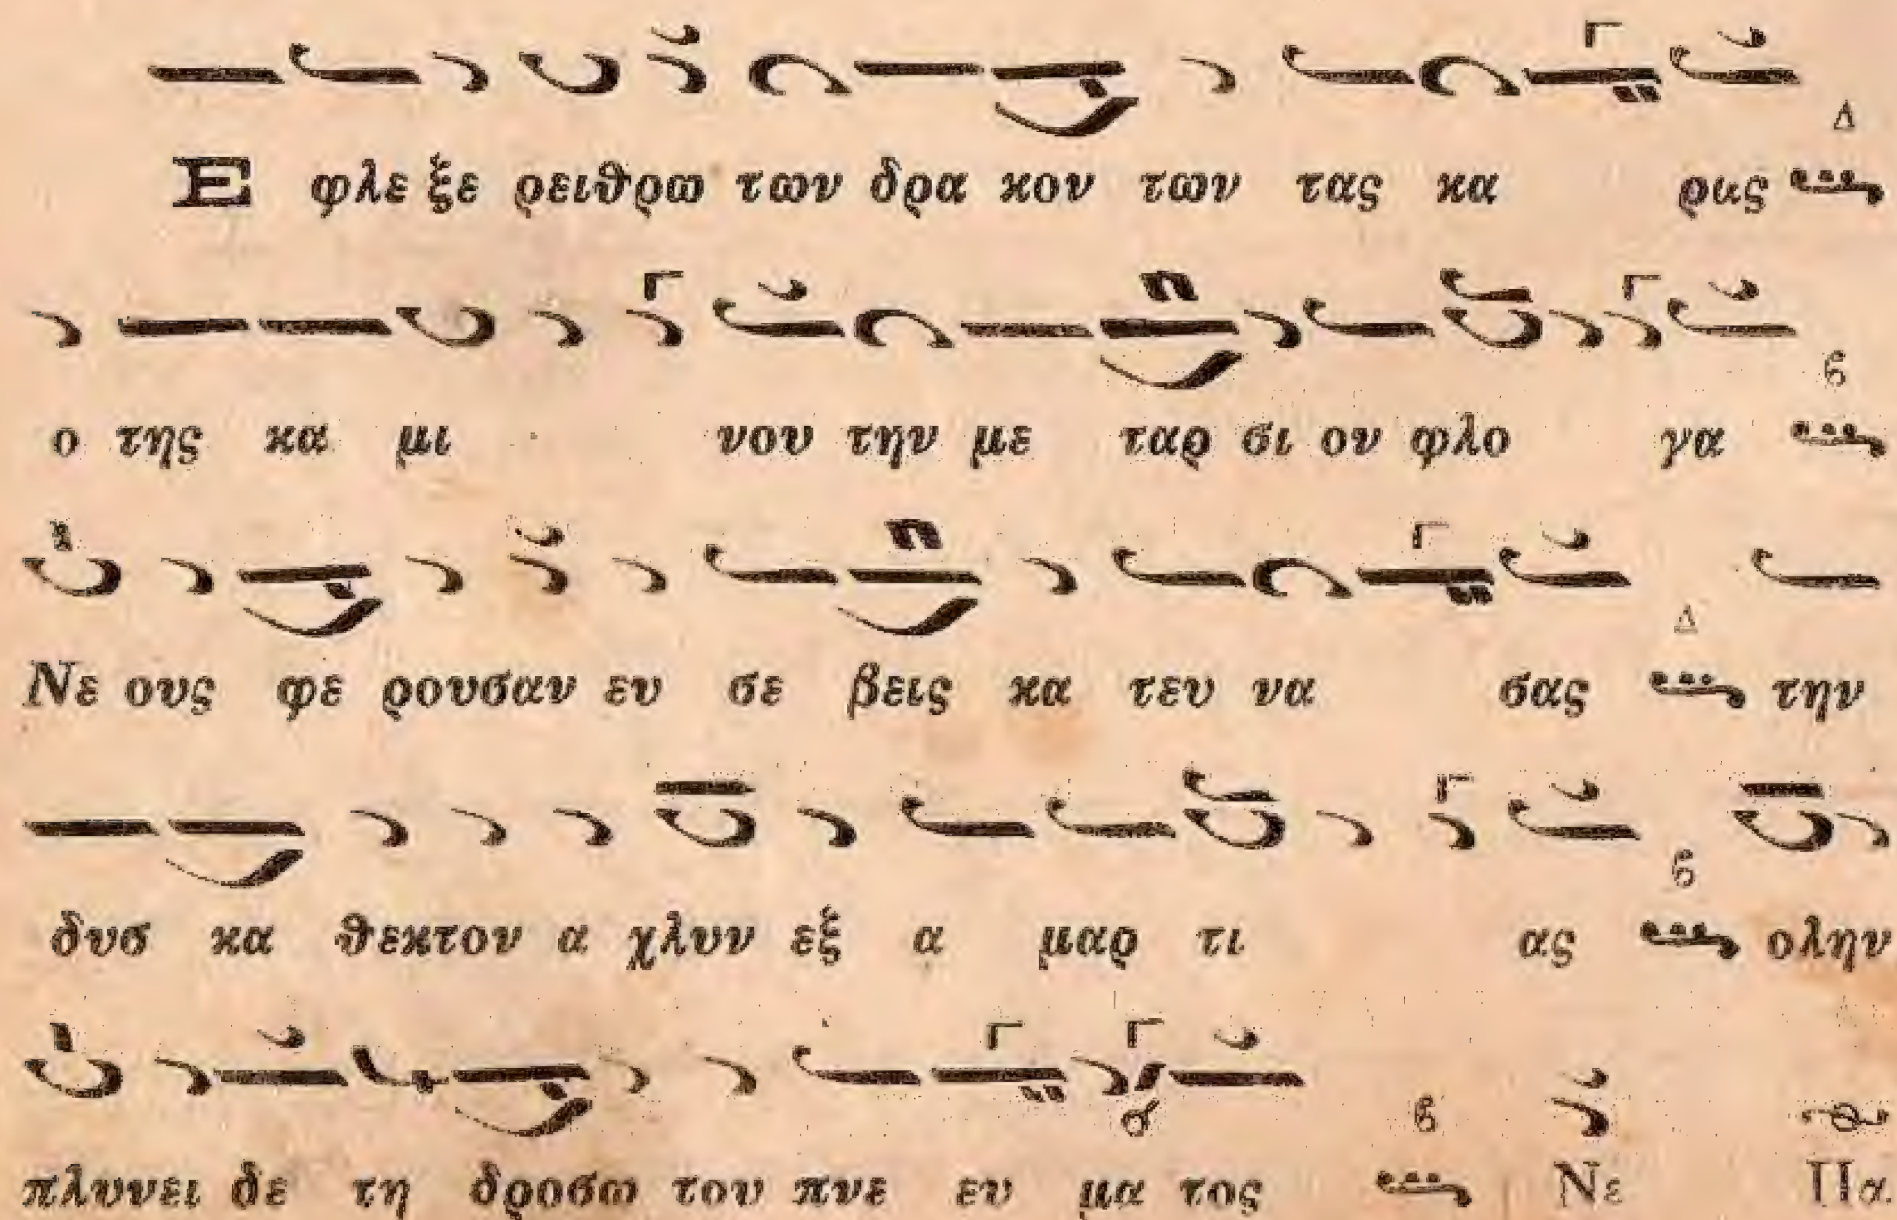 Δ
Ε φλε ξε ρειθρω των δρα κον των τας κα ρας
ϐ
ο της κα μι νου την με ταρ σι ον φλο γα
Δ
Νε ους φε ρουσαν ευ σε βεις κα τευ να σας την
ϐ
δυσ κα θεκτον α χλυν εξ α μαρ τι ας ολην
ϐ
πλυνει δε τη δροσω του πνε ευ μα τος Νε Πα.